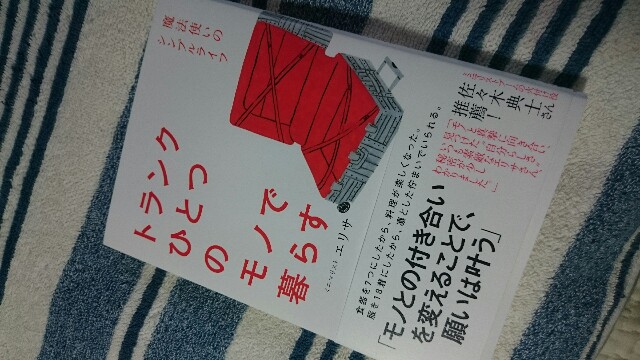 魔法使いの
シンプルライフ
トランク
ひとつ
のモノで
暮らす
ミニマリスト エリサ
ミニマリストブームの火付け役
佐々木典士さん
推薦！
食器を7つにしたから、料理が楽しくなった。
服を18着にしたから、凛とした佇まいでいられる。
「モノとの付き合い
を変えることで、
願いは叶う」